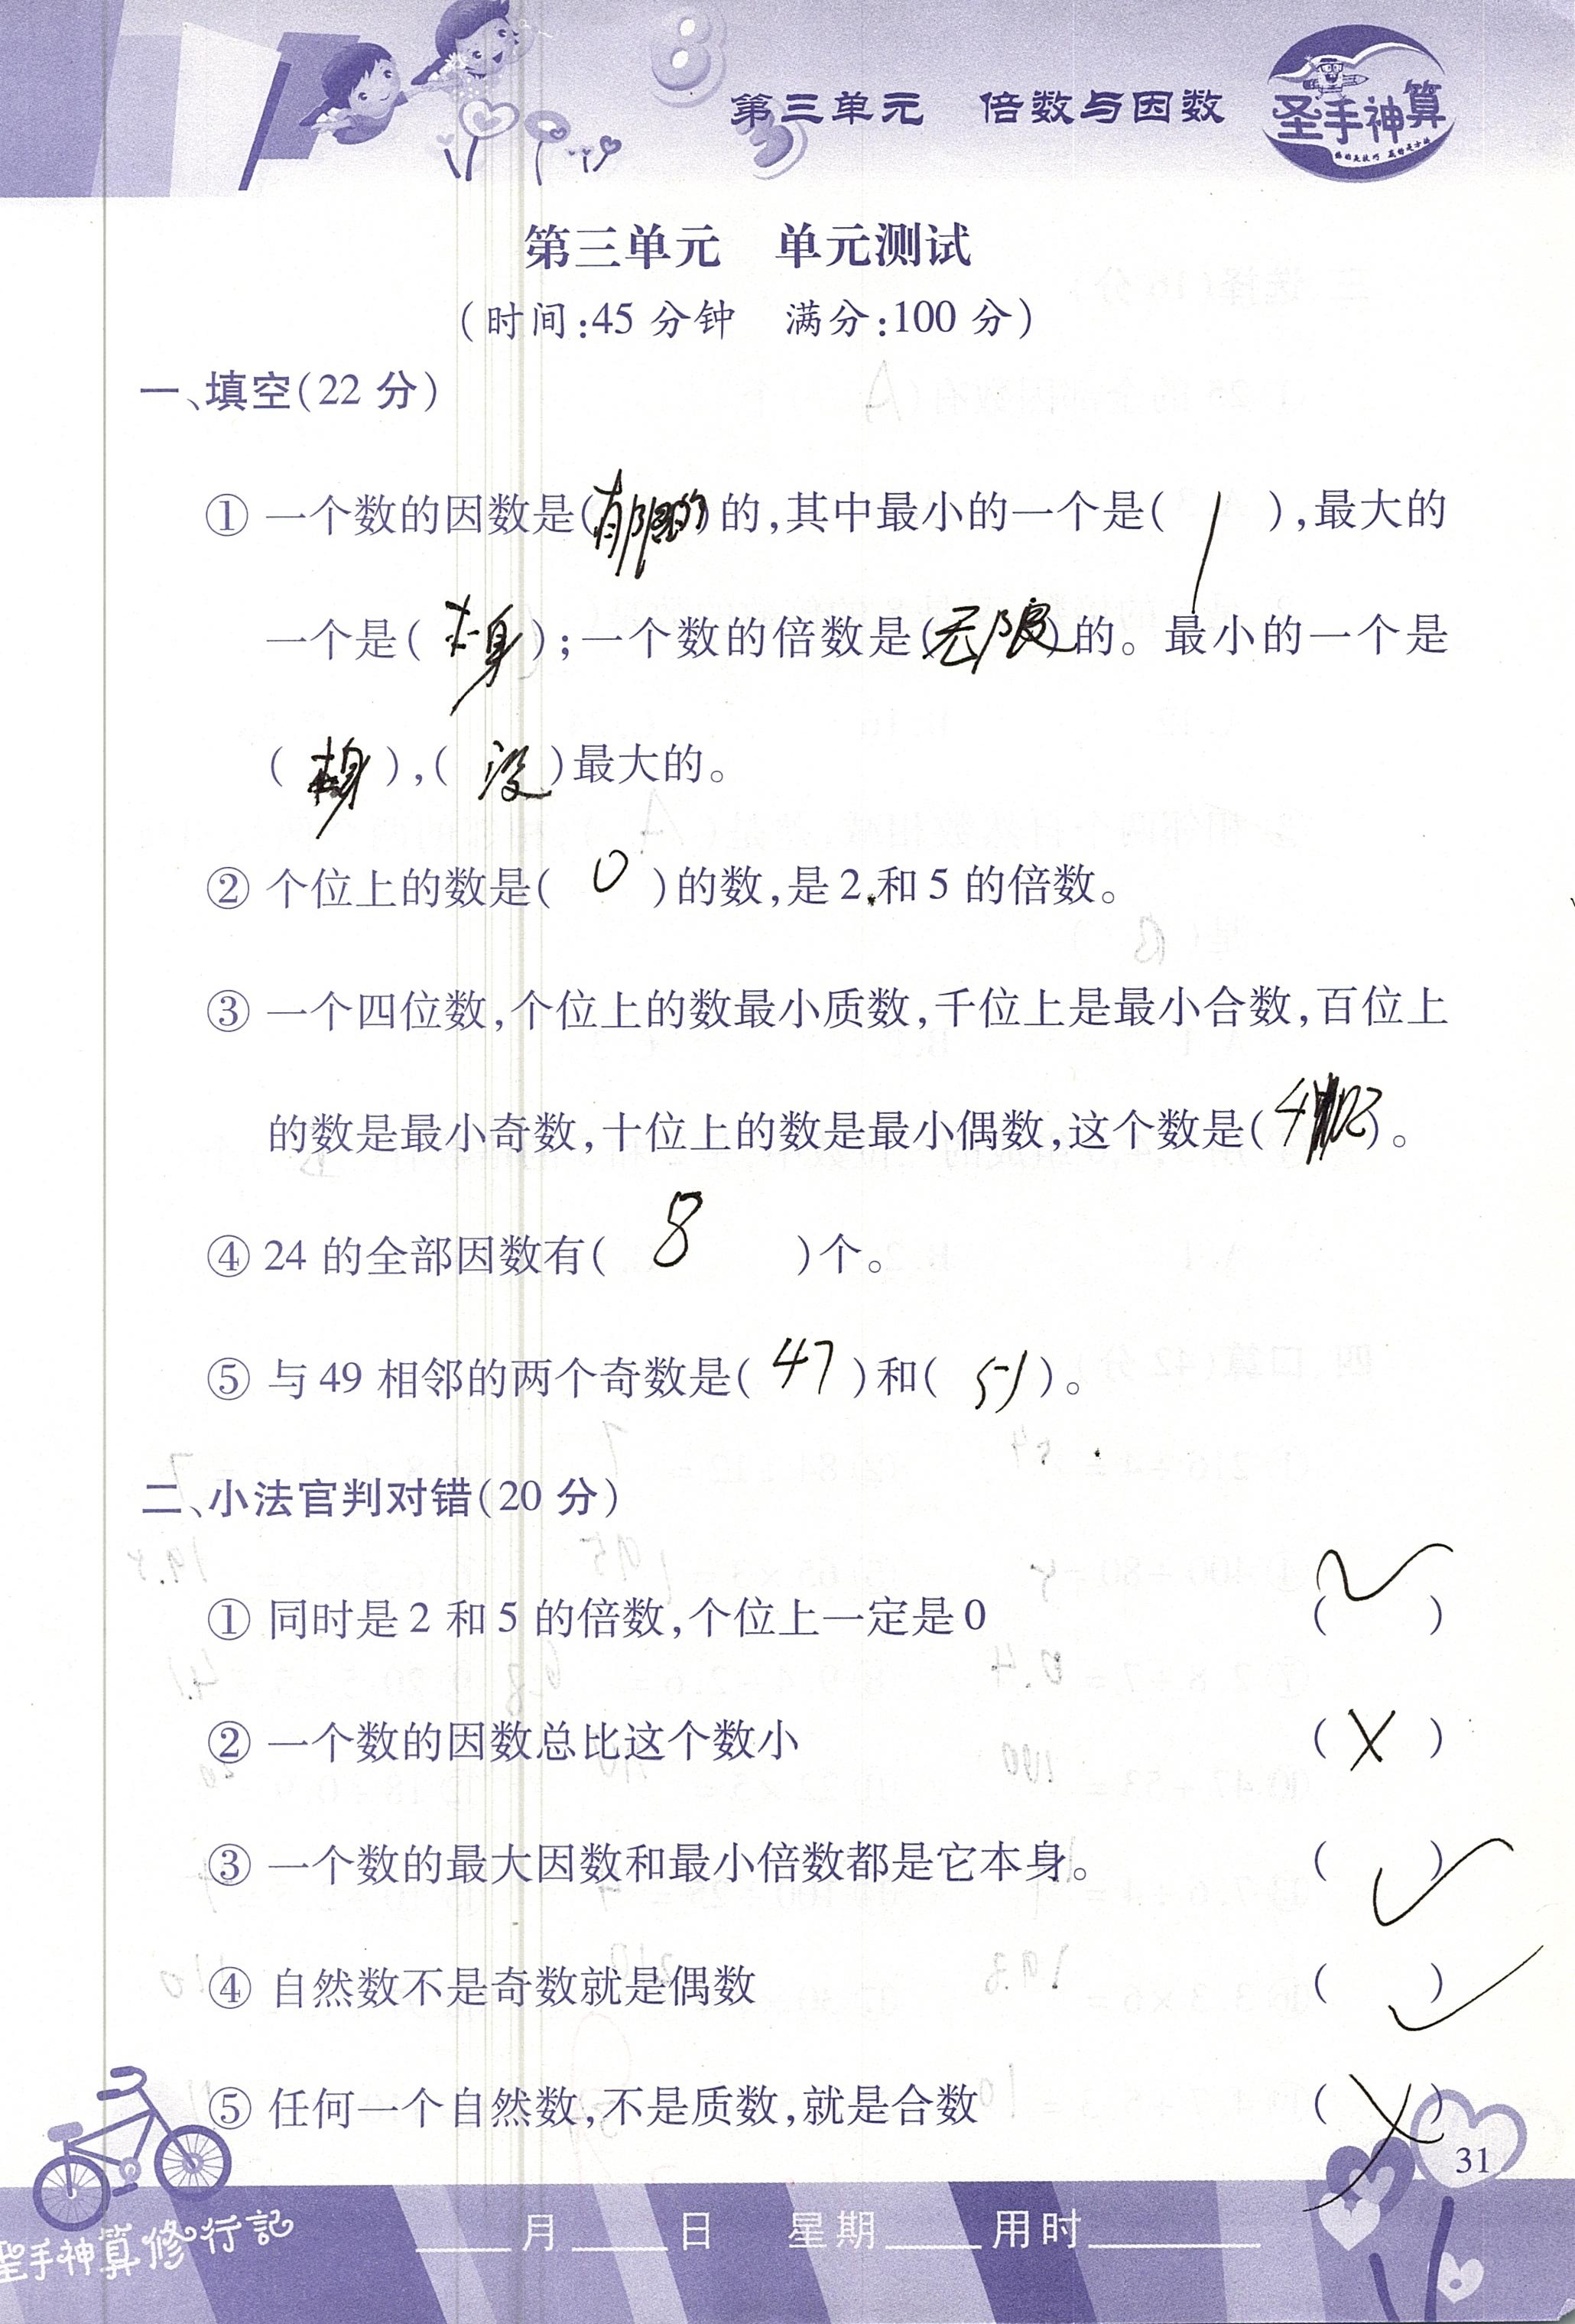 第三单元 倍数与因数
圣手神算
第三单元 单元测试
(时间:45 分钟 满分:100 分)
一、填空(22 分)
① 一个数的因数是(有限的)的,其中最小的一个是( 1 ),最大的
一个是( 本身 );一个数的倍数是(无限)的。最小的一个是
( 本身 ),( 没 )最大的。
② 个位上的数是( 0 )的数,是2和5 的倍数。
③ 一个四位数,个位上的数最小质数,千位上是最小合数,百位上
的数是最小奇数,十位上的数是最小偶数,这个数是(4102)。
④ 24 的全部因数有( 8 )个。
⑤ 与49 相邻的两个奇数是( 47 )和( 51 )。
二、小法官判对错(20 分)
① 同时是2 和5 的倍数,个位上一定是0 ( ✓ )
② 一个数的因数总比这个数小 ( X )
③ 一个数的最大因数和最小倍数都是它本身。 ( ✓ )
④ 自然数不是奇数就是偶数 ( ✓ )
⑤ 任何一个自然数,不是质数,就是合数 ( X )
31
圣手神算修行記
____月____日 星期____用时______